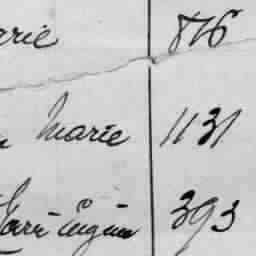 rie 876
Marie 1131
Marie Eugène 393